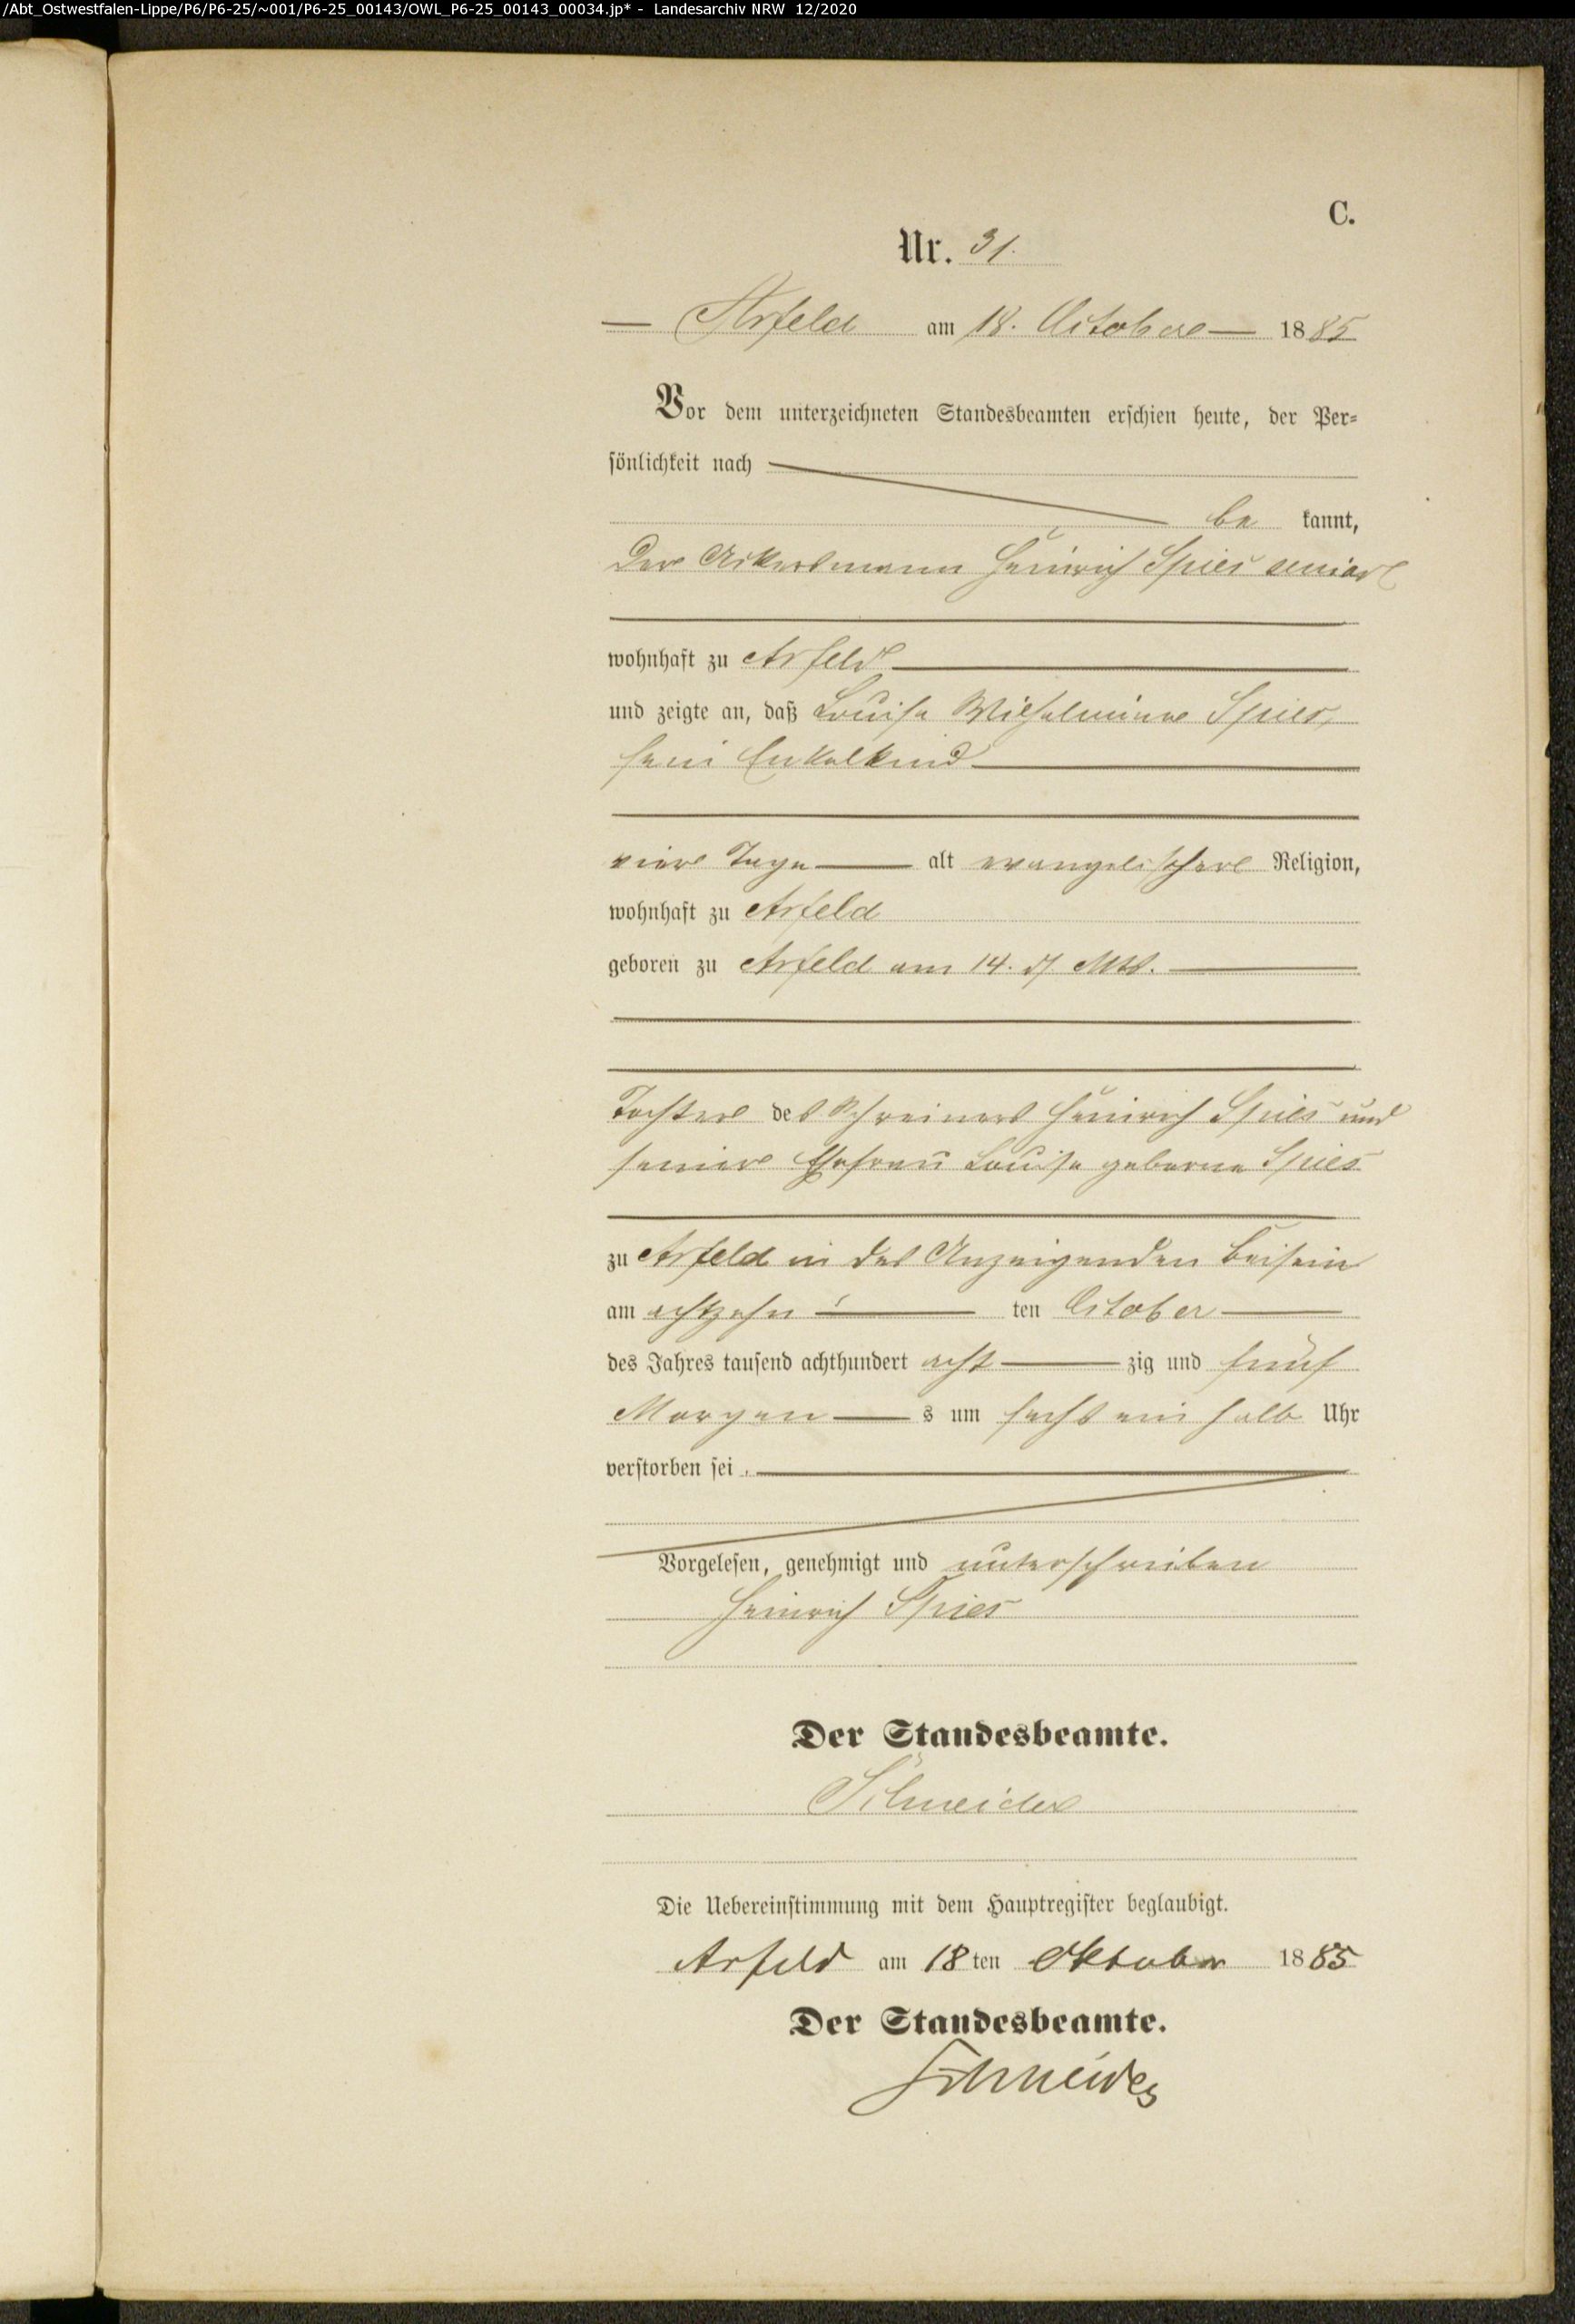 /Abt_Ostwestfalen-Lippe/P6/P6-25/~001/P6-25_00143/OWL_P6-25_00143_00034.jp* - Landesarchiv NRW 12/2020
C.
Nr. 31.
Arfeld am 18. October 1885
Vor dem unterzeichneten Standesbeamten erschien heute, der Per-
sönlichkeit nach
be kannt,
Der Ackersmann Heinrich Spies senior
wohnhaft zu Arfeld
und zeigte an, daß Louise Wilhelmine Spies,
sein Enkelkind
vier Tage alt evangelischer Religion,
wohnhaft zu Arfeld
geboren zu Arfeld am 14. d Mts.
Tochter des Schreiners Heinrich Spies und
seiner Ehefrau Louise geborne Spies
zu Arfeld in des Anzeigenden Beisein
am achtzehn ten October
des Jahres tausend achthundert acht zig und fünf
Morgen s um sechs ein halb Uhr
verstorben sei.
Vorgelesen, genehmigt und unterschrieben
Heinrich Spies
Der Standesbeamte.
Schneider
Die Uebereinstimmung mit dem Hauptregister beglaubigt.
Arfeld am 18ten Oktober 1885
Der Standesbeamte.
Schneider